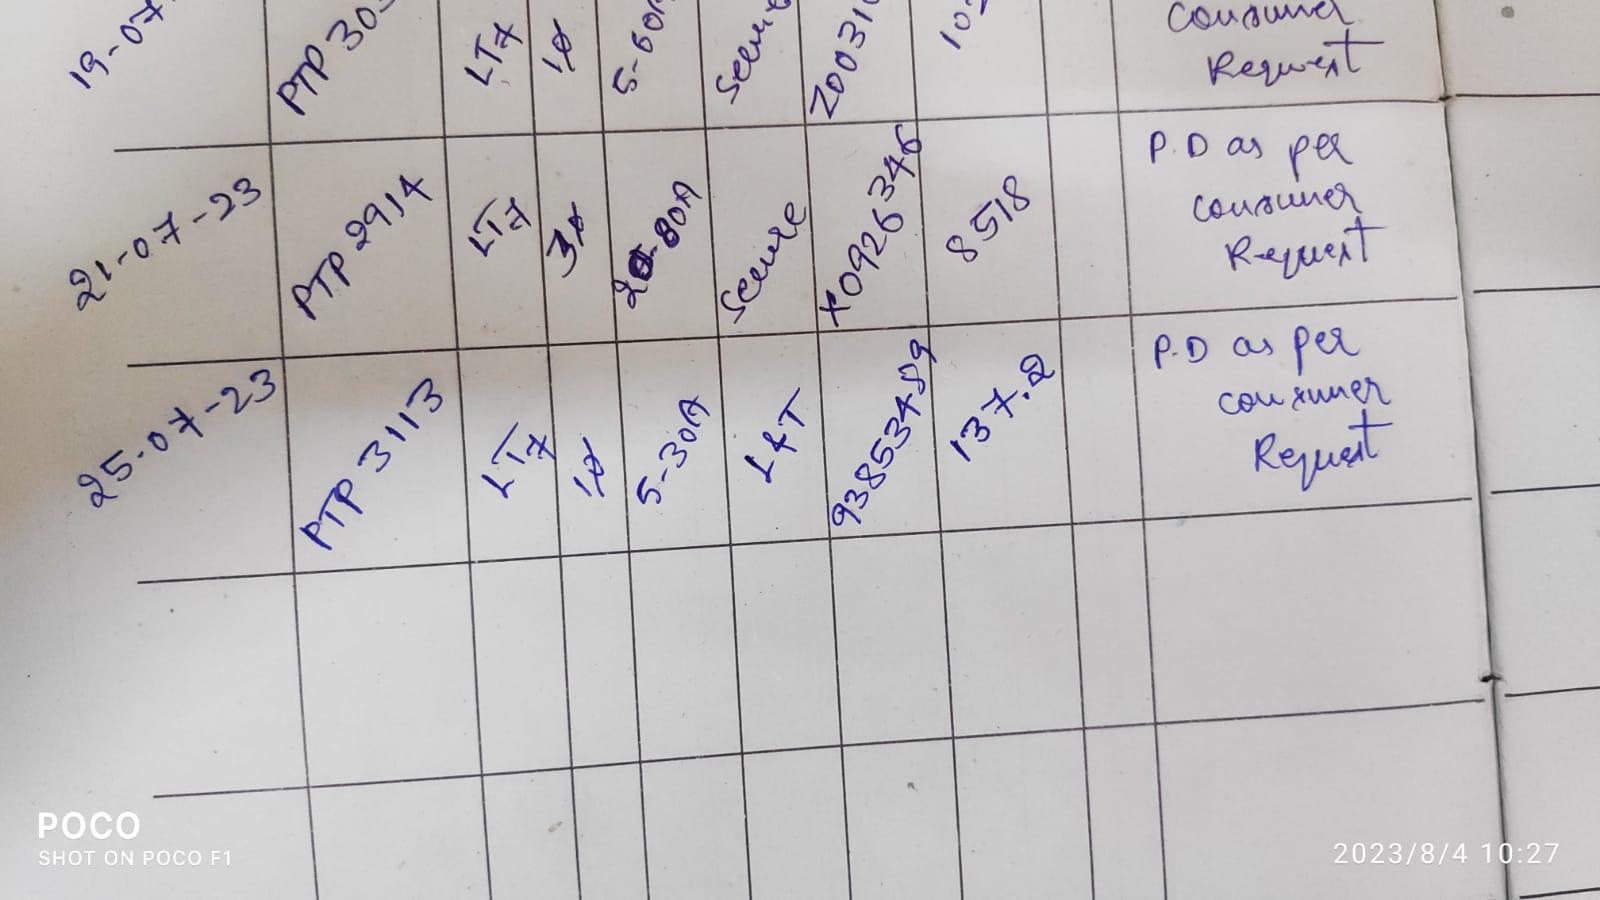 19-07 PTP 30 LT7 1ø 5-60A Secure Z00310 10 Consumer
Request
21-07-23 PTP 2914 LT7 3ø 20-80A Secure X0926346 8518 P.D as per
consumer
Request
25-07-23 PTP 3113 LT7 1ø 5-30A L&T 93853489 137.2 P.D as per
consumer
Request
POCO
SHOT ON POCO F1
2023/8/4 10:27